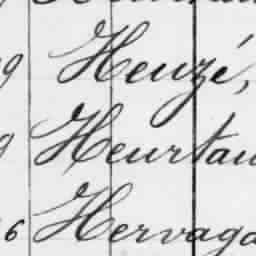 9 Heuzé,
9 Heurtau
6 Hervaga